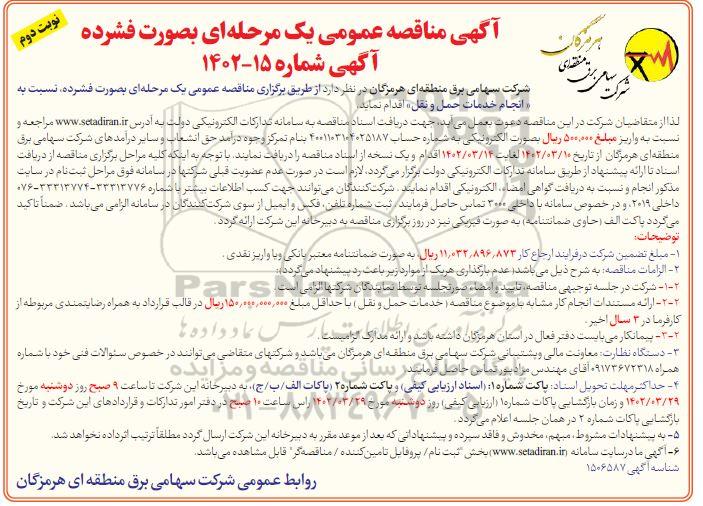 نوبت دوم
آگهی مناقصه عمومی یک مرحله‌ای بصورت فشرده
آگهی شماره ۱۵-۱۴۰۲
هرمزگان
شرکت سهامی برق منطقه‌ای
شرکت سهامی برق منطقه‌ای هرمزگان در نظر دارد از طریق برگزاری مناقصه عمومی یک مرحله‌ای بصورت فشرده، نسبت به
« انجام خدمات حمل و نقل» اقدام نماید.
لذا از متقاضیان شرکت در این مناقصه دعوت بعمل می آید، جهت دریافت اسناد مناقصه به سامانه تدارکات الکترونیکی دولت به آدرس www.setadiran.ir مراجعه و
نسبت به واریز مبلغ ۵۰۰,۰۰۰ ریال بصورت الکترونیکی به شماره حساب ۴۰۰۱۱۰۳۱۰۴۰۲۵۱۸۷ بنام تمرکز وجوه درآمد حق انشعاب و سایر درآمدهای شرکت سهامی برق
منطقه‌ای هرمزگان از تاریخ ۱۴۰۲/۰۳/۱۰ لغایت ۱۴۰۲/۰۳/۱۴ اقدام و یک نسخه از اسناد مناقصه را دریافت نمایند. با توجه به اینکه کلیه مراحل برگزاری مناقصه از دریافت
اسناد تا ارائه پیشنهاد از طریق سامانه تدارکات الکترونیکی دولت برگزار می‌گردد، لازم است در صورت عدم عضویت قبلی شرکتها در سامانه فوق مراحل ثبت‌نام در سایت
مذکور انجام و نسبت به دریافت گواهی امضاء الکترونیکی اقدام نمایند. شرکت‌کنندگان می‌توانند جهت کسب اطلاعات بیشتر با شماره ۳۳۳۱۳۷۷۶-۳۳۳۱۳۷۷۴-۰۷۶
داخلی ۲۰۱۹، و در خصوص سامانه با داخلی ۳۰۰۰ تماس حاصل فرمایند. ثبت شماره تلفن، فکس و ایمیل از سوی شرکت‌کنندگان در سامانه الزامی می‌باشد. ضمناً تاکید
می‌گردد پاکت الف (حاوی ضمانتنامه) به صورت فیزیکی نیز در روز برگزاری مناقصه به دبیرخانه این شرکت ارائه گردد.
توضیحات:
۱- مبلغ تضمین شرکت در فرایند ارجاع کار ۱۱,۰۳۲,۸۹۶,۸۷۳ ریال، به صورت ضمانتنامه معتبر بانکی و یا واریز نقدی .
۲- الزامات مناقصه: به شرح ذیل می‌باشد( عدم بارگذاری هریک از موارد زیر باعث رد پیشنهاد می‌گردد):
۱-۲- شرکت در جلسه توجیهی مناقصه، تایید و امضاء صورتجلسه توسط نمایندگان شرکتها الزامی است .
۲-۲- ارائه مستندات انجام کار مشابه با موضوع مناقصه ( خدمات حمل و نقل ) با حداقل مبلغ ۱۵۰,۰۰۰,۰۰۰,۰۰۰ ریال در قالب قرارداد به همراه رضایتمندی مربوطه از
کارفرما در ۳ سال اخیر .
۳-۲- پیمانکار می‌بایست دفتر فعال در استان هرمزگان داشته باشد و ارائه مدارک الزامیست .
۳- دستگاه نظارت: معاونت مالی و پشتیبانی شرکت سهامی برق منطقه‌ای هرمزگان می‌باشد و شرکتهای متقاضی می‌توانند در خصوص سئوالات فنی خود با شماره
همراه ۰۹۱۷۳۶۷۲۳۱۸ آقای مهندس مرادپور تماس حاصل فرمایند.
۴- حداکثر مهلت تحویل اسناد: پاکت شماره۱: (اسناد ارزیابی کیفی) و پاکت شماره۲ (پاکات الف/ ب/ ج)، به دبیرخانه این شرکت تا ساعت ۹ صبح روز دوشنبه مورخ
۱۴۰۲/۰۳/۲۹ و زمان بازگشایی پاکات شماره۱ (ارزیابی کیفی) روز دوشنبه مورخ ۱۴۰۲/۰۳/۲۹ راس ساعت ۱۰ صبح در دفتر امور تدارکات و قراردادهای این شرکت و تاریخ
بازگشایی پاکات شماره ۲ در همان جلسه اعلام می‌گردد.
۵- به پیشنهادات مشروط، مبهم، مخدوش و فاقد سپرده و پیشنهاداتی که بعد از موعد مقرر به دبیرخانه این شرکت ارسال گردد مطلقاً ترتیب اثر داده نخواهد شد.
۶- آگهی ما در سایت سامانه (www.setadiran.ir) بخش"ثبت نام/ پروفایل تامین‌کننده / مناقصه‌گر" قابل مشاهده می‌باشد.
شناسه آگهی ۱۵۰۶۵۸۷
روابط عمومی شرکت سهامی برق منطقه ای هرمزگان